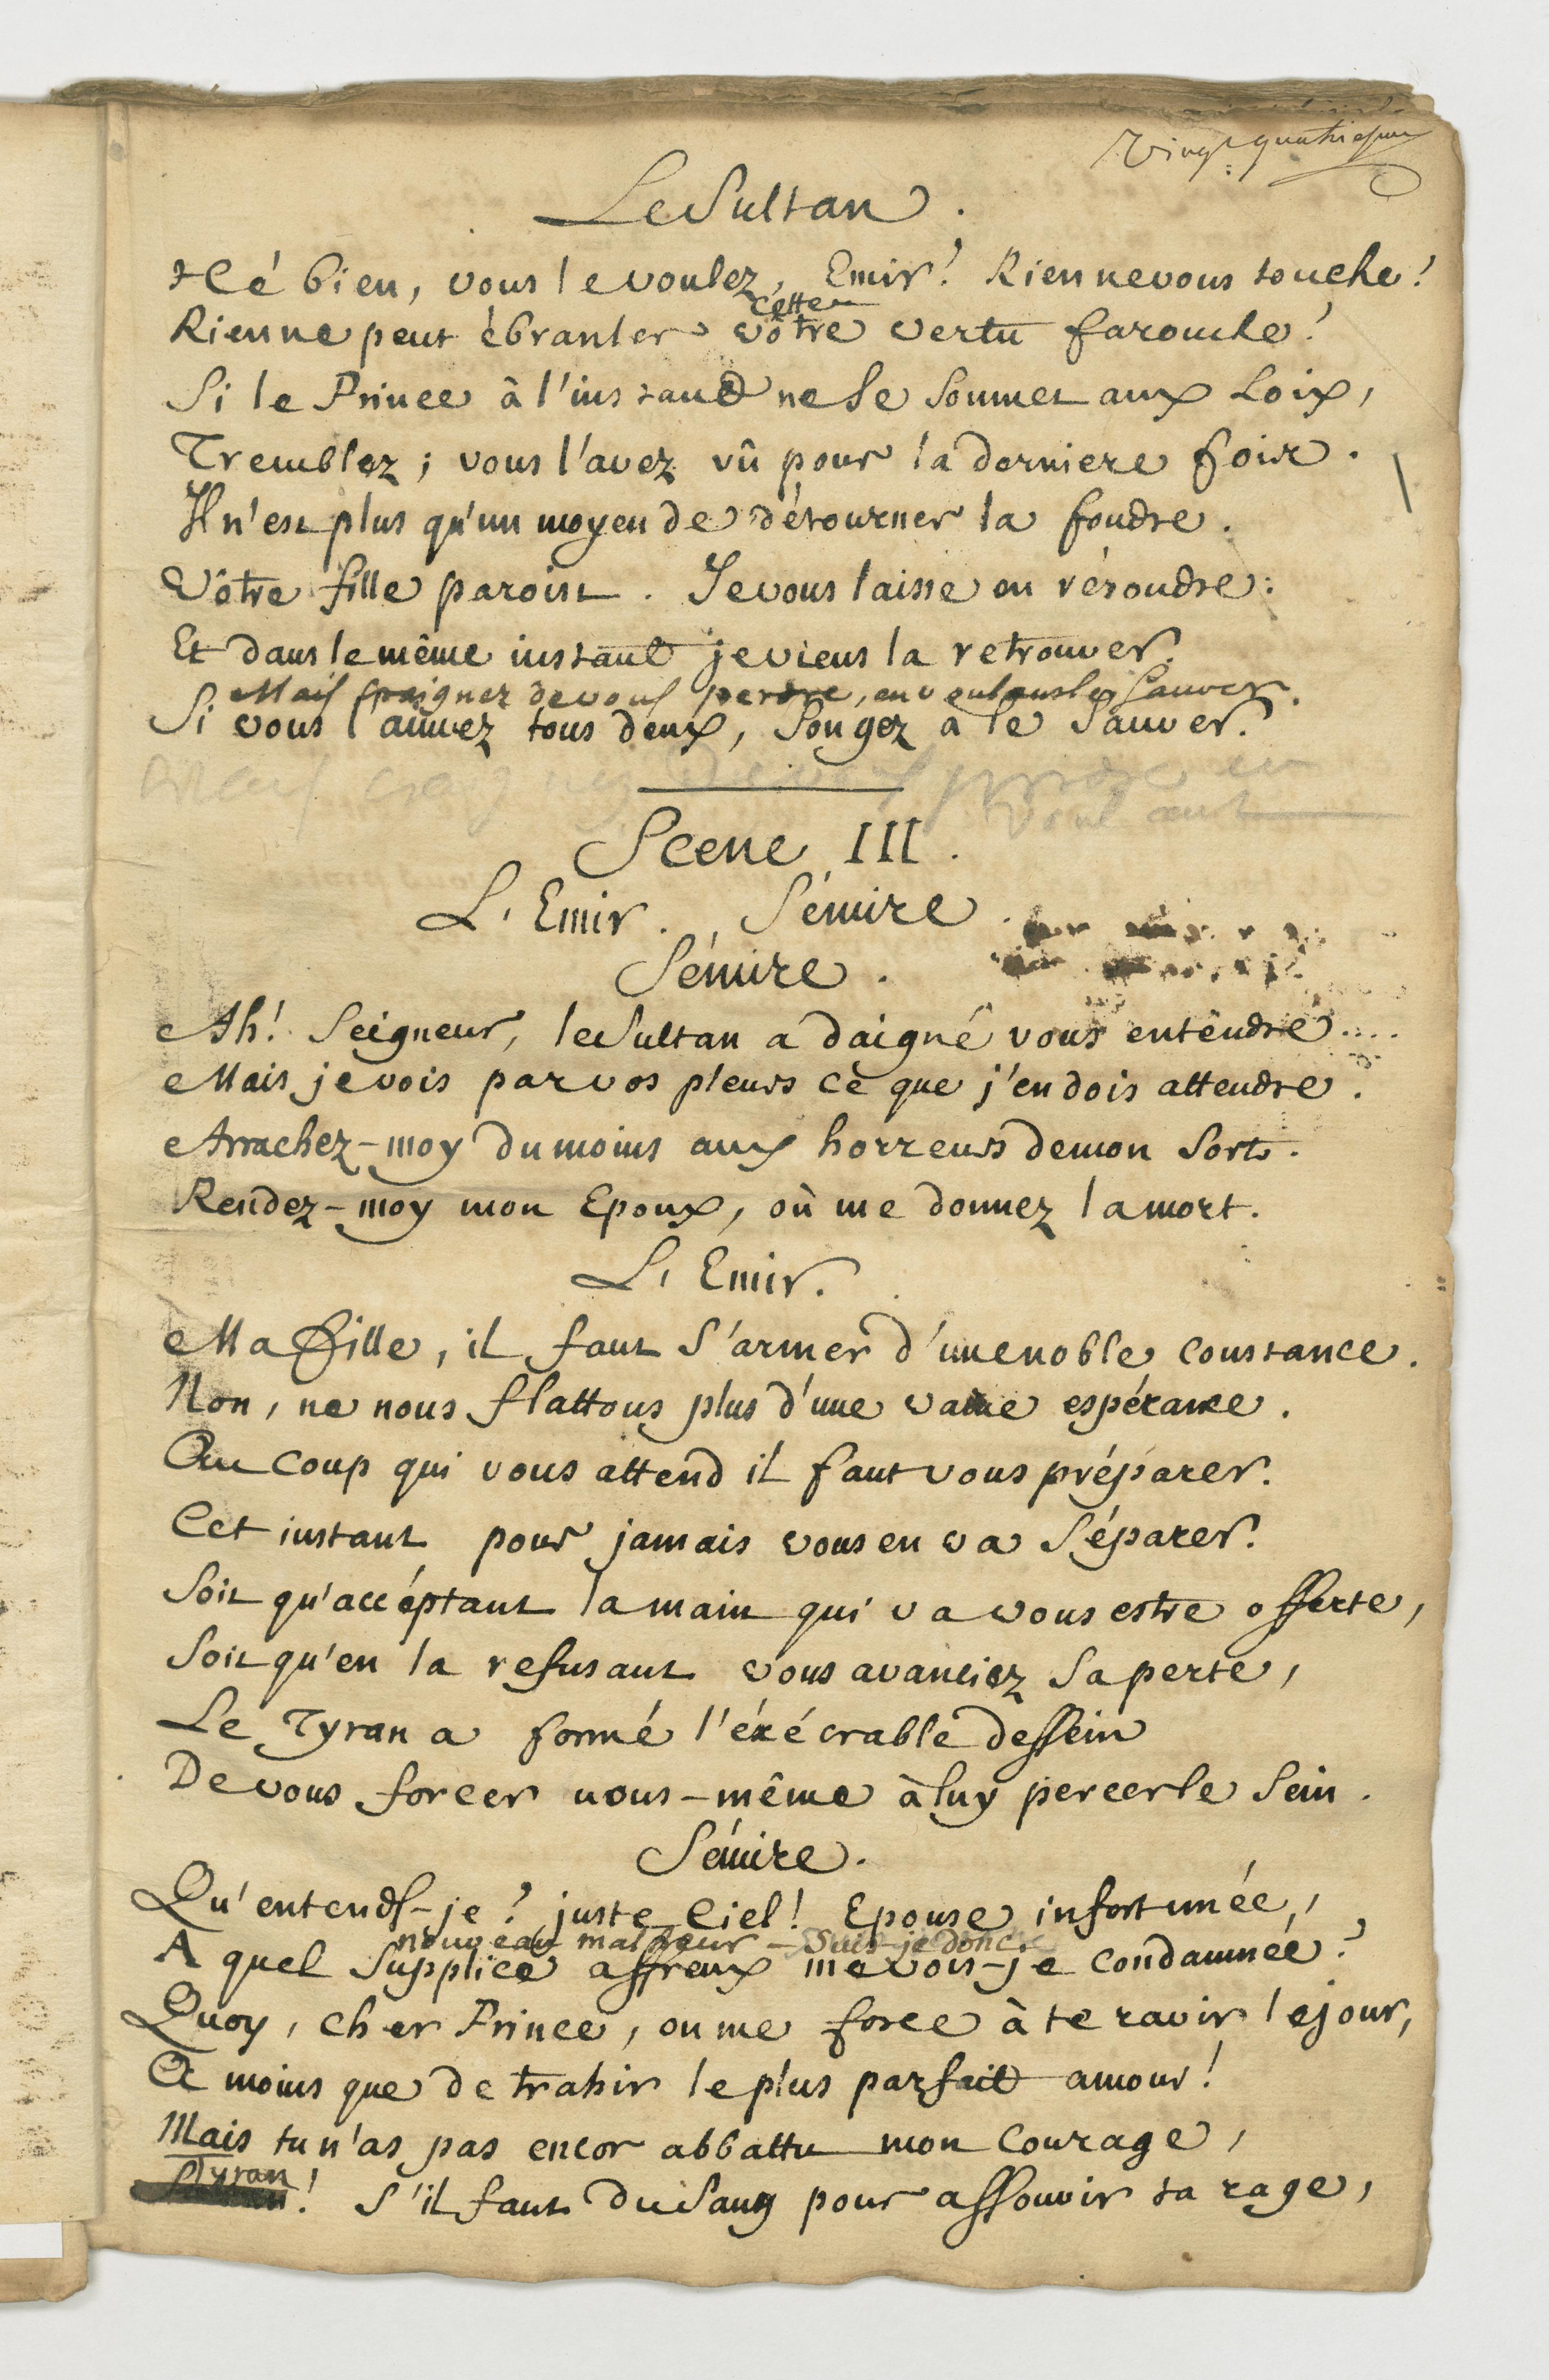 Vingt quatriesme
Le Sultan.
Hé bien, vous le voulez, Emir! Rien ne vous touche!
cette
Rien ne peut ébranler vôtre vertu farouche!
Si le Prince à l'instant ne se soumet aux Loix,
Tremblez; vous l'avez vû pour la derniere fois.
Il n'est plus qu'un moyen de détourner la foudre.
Vôtre fille paroist. Je vous laisse en résoudre:
Et dans le même instant je viens la retrouver.
Mais craignez de vous perdre, en voulant le sauver.
Si vous l'aimez tous deux, songez à le sauver.
Mais craignez de vous perdre en
voulant
Scene III.
L'Emir. Sémire.
Sémire.
Ah! Seigneur, le Sultan a daigné vous entendre....
Mais je vois par vos pleurs ce que j'en dois attendre.
Arrachez-moy du moins aux horreurs de mon sort.
Rendez-moy mon Epoux, où me donnez la mort.
L'Emir.
Ma fille, il faut s'armer d'une noble constance.
Non, ne nous flattons plus d'une vaine espérance.
Au coup qui vous attend il faut vous préparer.
Cet instant pour jamais vous en va séparer.
Soit qu'accéptant la main qui va vous estre offerte,
Soit qu'en la refusant vous avanciez sa perte,
Le Tyran a formé l'éxécrable dessein
De vous forcer vous-même à luy percer le sein.
Sémire.
Qu'entends-je? juste Ciel! Epouse infortunée,
nouveau malheur - suis-je donc
A quel supplice affreux me vois-je condamnée?
Quoy, cher Prince, on me force à te ravir le jour,
A moins que de trahir le plus parfait amour!
Mais tu n'as pas encor abbattu mon courage,
Tyran! S'il faut du sang pour assouvir ta rage,